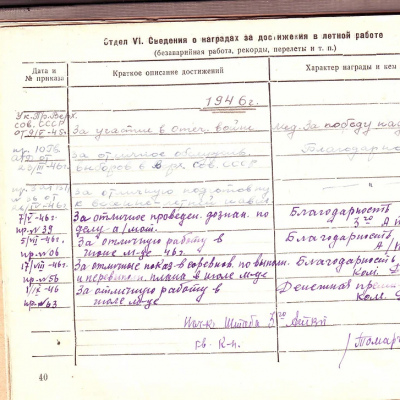 Отдел VI. Сведения о наградах за достижения в летной работе
(безаварийная работа, рекорды, перелеты и т. п.)
Дата и № приказа
Краткое описание достижений
Характер награды и кем
1946г.
Ук. Пр. Верх. Сов. СССР от 9/V-45г.
За участие в отеч. войне
Мед. За победу над
пр. 1058
За отличное
выборов в Вх Сов. СССР
Благодарно
За отличную подготовку
7/V-46г. пр. № 39
За отличное проведен. дознан. по делу а/мот.
Благодарность
5/VII-46г. пр. № 06
За отличную работу в июне м-це 46г.
Благодарность
17/VIII-46г. пр. № 56
За отличные показ. в соревнов. по выполн. и перевыполн. плана в июле м-це
Благодарность
Ком.
пр. № 63
За отличную работу в июле м-це
Денежная прем
Ком.
Нач-к Штаба 3го
гв. к-н.
/Томар
40